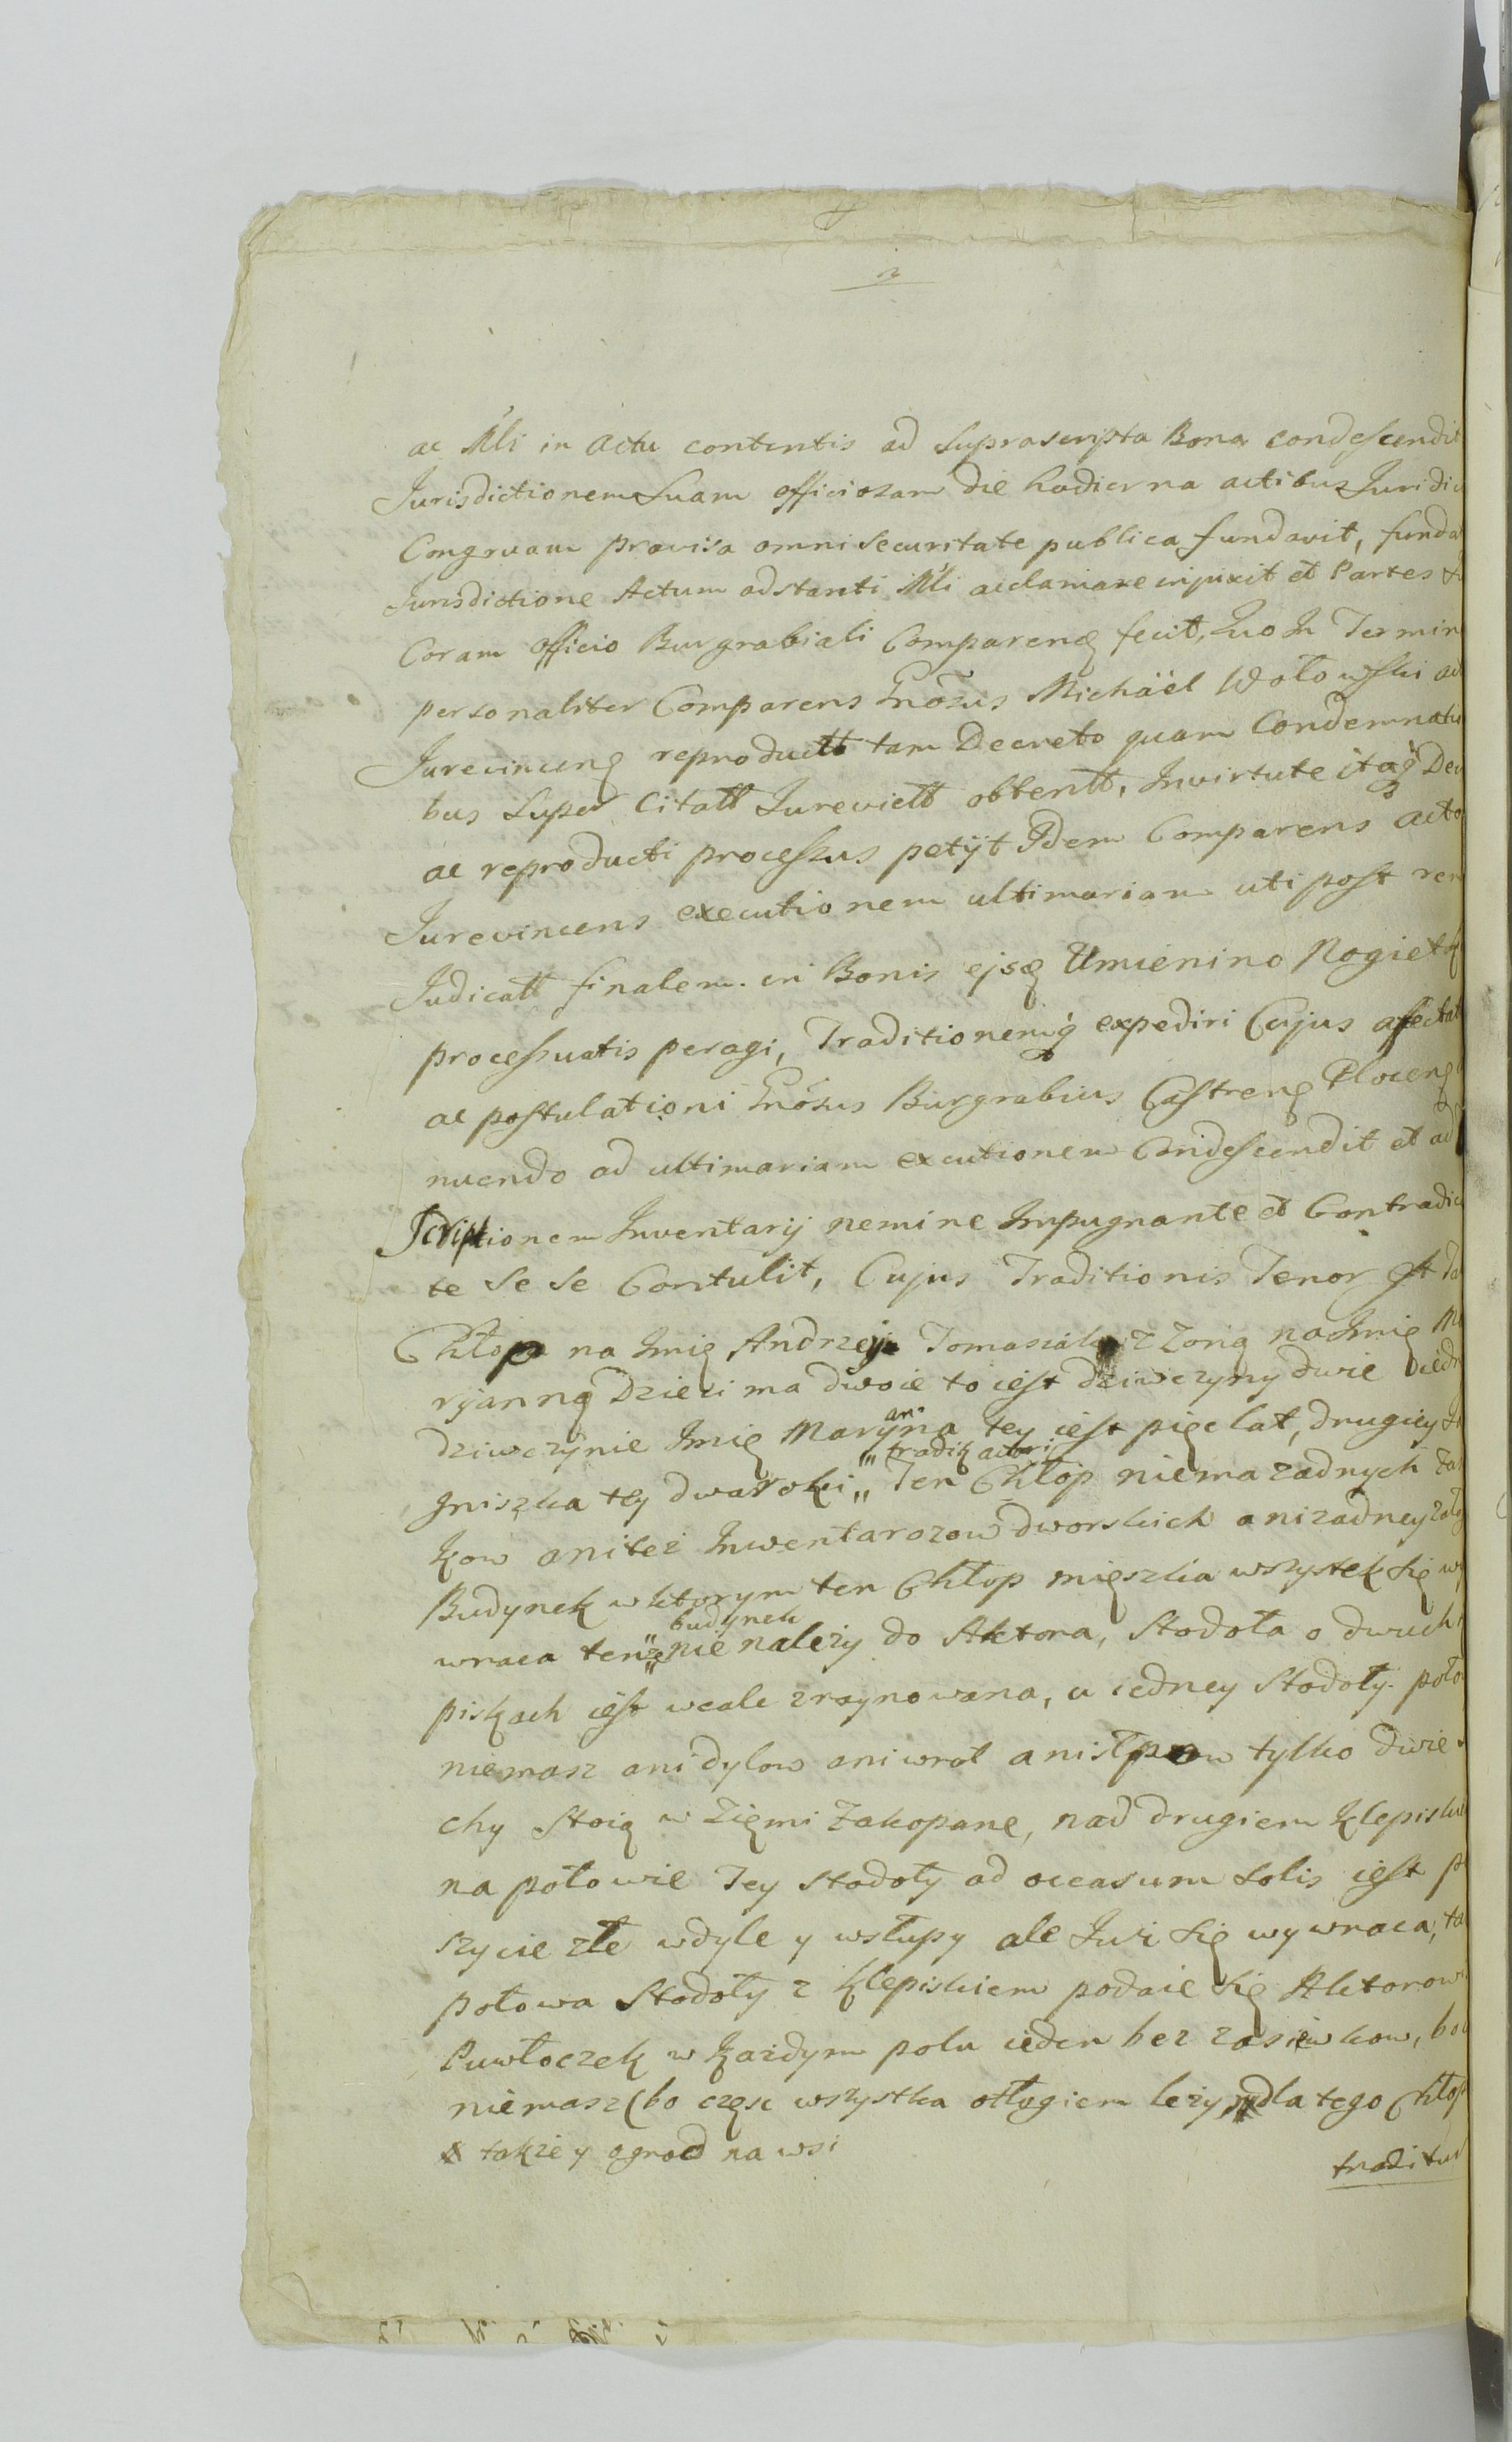 2
ac Mli in Actu contentis ad Suprascripta Bona condescendit
Jurisdictionem Suam officiosam die hodierna actibus Juridic
Congruam provisa omni securitate publica fundavit, funda
Jurisdictione Actum adstanti Mli acclamare injuxit et Partes
Coram Officio Burgrabiali Comparenę fecit, Quo In Termin
personaliter Comparens Gnosus Michäel Wołowski ac
Jurevincenę reproductt tam Decreto quam Condemnatio
bus Super Citatt Jurevictt obtentt, Invirtute itaq Dec
ac reproducti processus petÿt Idem Comparens acto
Jurevincens executionem ultimariam uti post rem
Judicatt finalem in Bonis ejsę Umienino Rogietk
processuatis peragi, Traditionemq expediri Cujus afectat
ac postulationi Gnosus Burgrabius Castrenę Plocenę
nuendo ad ultimariam executionem Condescendit et ad
Scriptionem Inventarij nemine Impugnante et Contradic
te Se Se Contulit, Cujus Traditionis Tenor est ta
Chłopa na Imię Andrzeja Tomasiaka z Zoną na Imię Ma
ryanną Dzieci ma dwoie to iest dziwczyny dwie iedn
dziwczynie Imię Maryna an tey iest pięc lat, drugiey
gniszka tey dwa roki „ tradit actori „ Ten Chłop niema zadnych za
kow anitez Inwentarozow dworskich anizadney zało
Budynek wktorym ten Chłop mięszka wszystek się wy
wraca ten „ budynek „ nie nalezy do Aktora, Stodoła o dwuch
piskach iest wcale zraynowana, u iedney Stodoły poło
niemasz ani dylow ani wrot anisłpow tylko dwie
chy Stoią w Ziemi zakopane, nad drugiem klepisku
na połowie Tey stodoły ad occasum Solis iest p
szycie złe wdyle y wsłupy ale Iuz się wywraca, ta
połowa Stodoły z klepiskiem podaie się Aktorow
Puwłoczek w kazdym polu ieden bez zasiewkow, bo
niemasz (bo częsc wszystka otłogiem lezy, dla tego Chłop
x takze y ogrod na wsi
traditur